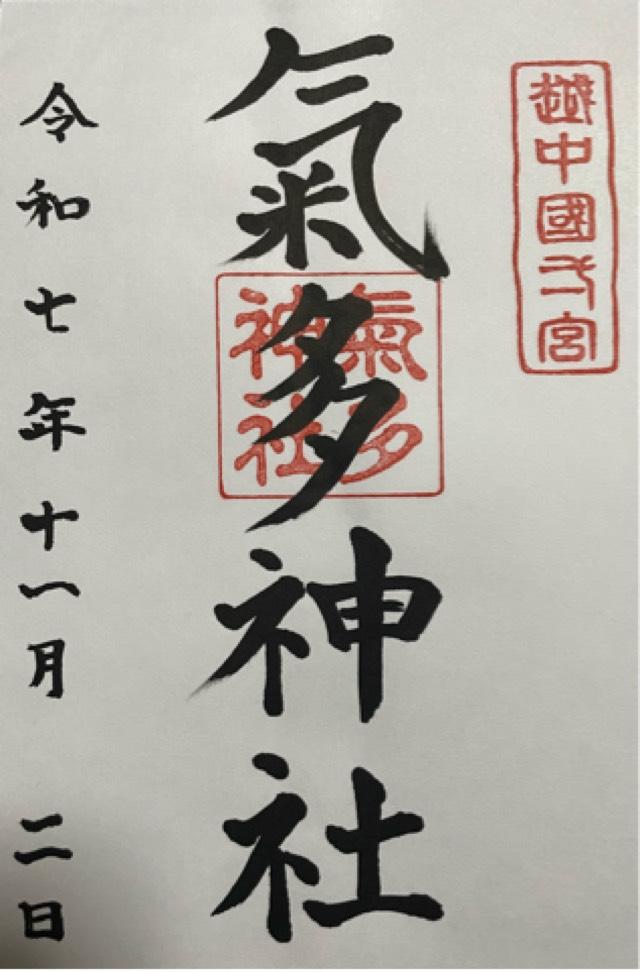 越中國弌宮
氣多神社
氣多
神社
令和七年十一月二日